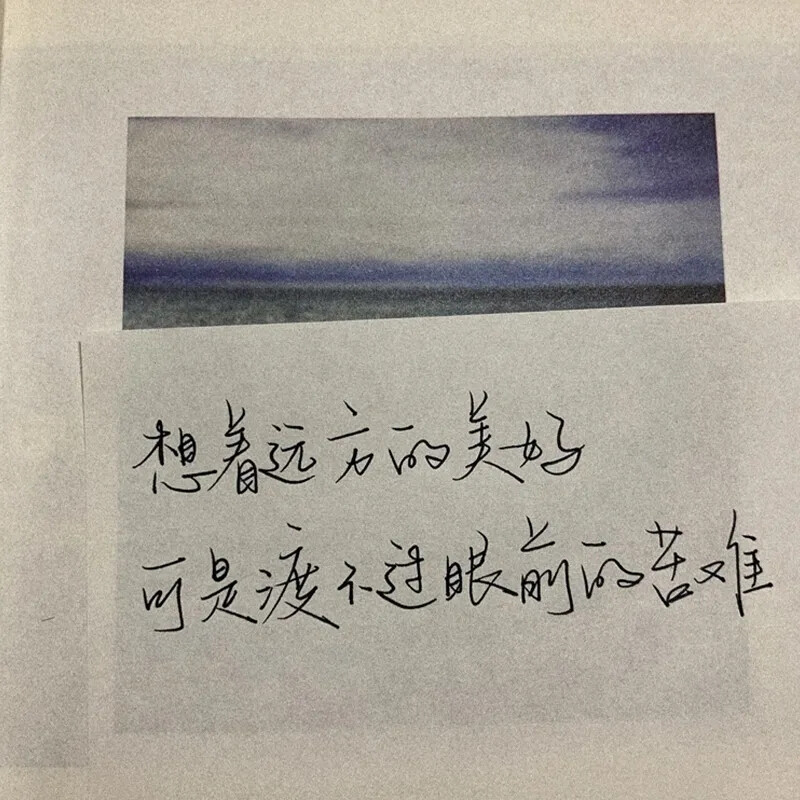 想着远方的美好
可是渡不过眼前的苦难